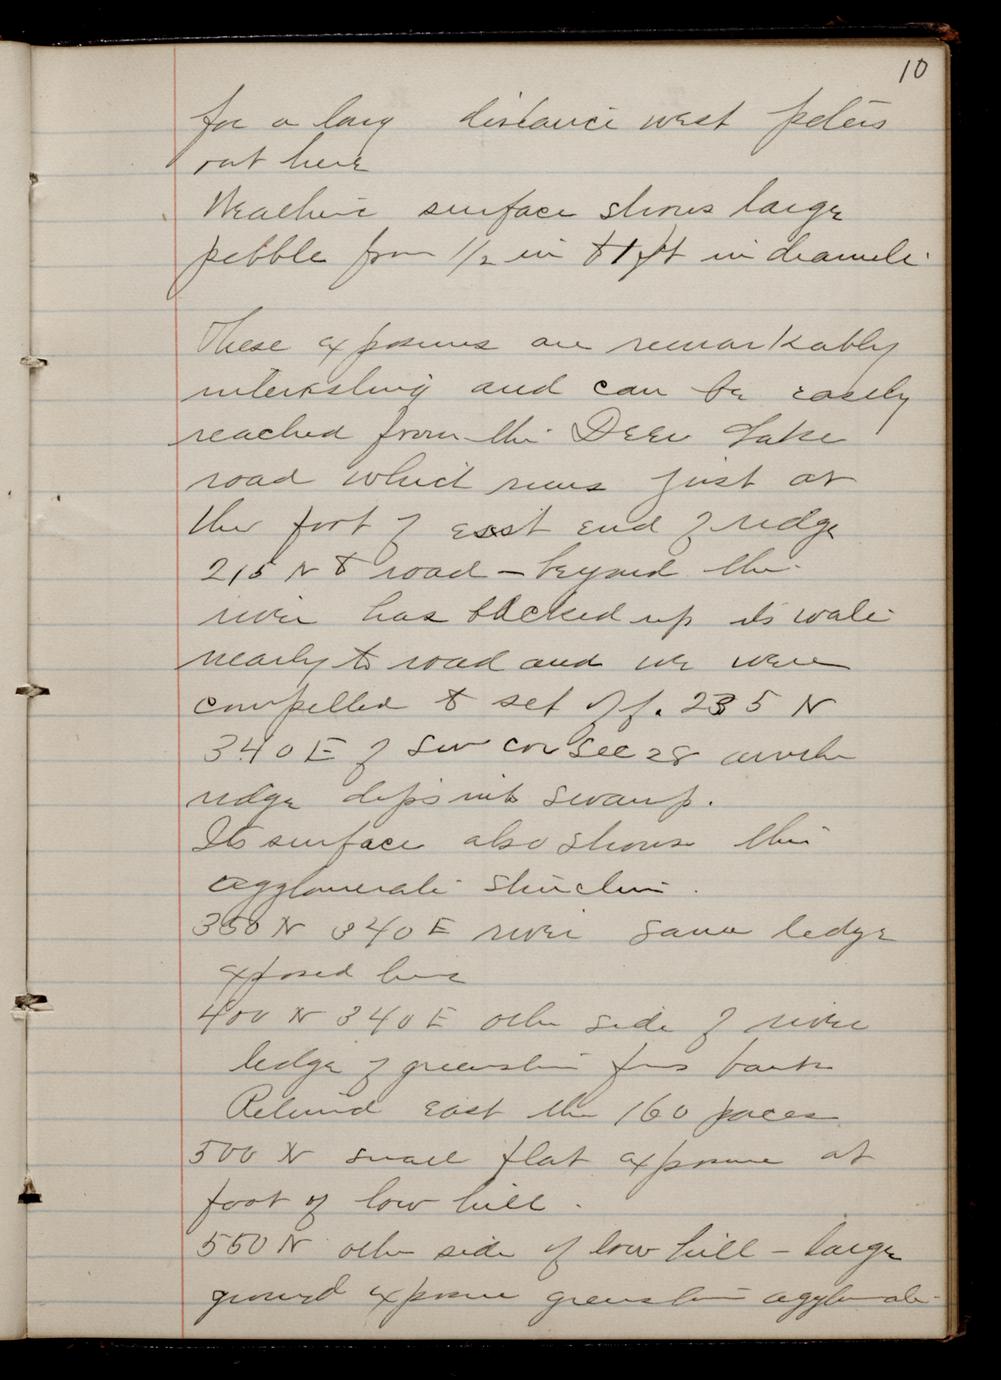 10
for a long distance west peters
out here
Weathering surface shows large
pebble from 1/2 in to 1 ft in diameter
These exposures are remarkably
interesting and can be easily
reached from the Deer Lake
road which runs just at
the foot of east end of ridge
215 N to road - beyond the
river has backed up its water
nearly to road and we were
compelled to set off. 235 N
340 E of SW cor Sec 28 another
ridge dips into swamp.
Its surface also shows this
agglomerate structure.
350 N 340 E river same ledge
exposed here
400 N 340 E other side of river
ledge of greenstone fms bank
Returned east the 160 paces
500 N small flat exposure at
foot of low hill.
550 N other side of low hill - large
ground exposure greenstone agglomerate